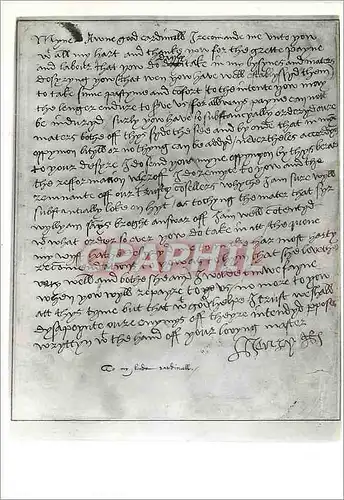 Myne Awne good cardinall I recomande me unto yow
w^t all my hart and thanke yow for the grette payne
and labour that yow do dayly take in my bysynes and maters
desyryng yow that wen yow have well stablyssyd them
to take summe pastyme and comfort to the intente yow may
the longer endure to serve us for allways payne can nott
be induryd surly yow have so substancially orderyd oure
maters bothe off thys syde the see and byonde that in my
oppynion lityll or no thyng can be addyd nevertheles accordyng
to your desyre I do send yow myne oppynyon by thys berar
the reformation wheroff I do remytte to yow and the
remnant off our trusty cosellers whyche I am sure wyll
substantially loke on hyt as tochyng the mater that syr
wyllyam says broght answar off I am well contentyd
w^t what order so ever yow do take in itt the quene
my wyff hath
most harty
recom
that she lovethe
yow well and bothe she and I wolde knowe fayne
when yow wyll repayre to us no more to yow
att thys tyme but that w^t gods helpe I trust we shall
dysapoynte oure enymys off theyre intendyd purpose
wryttyn w^t the hand off your lovyng master
Henry R
To my lorde cardinall
CPAPHIL